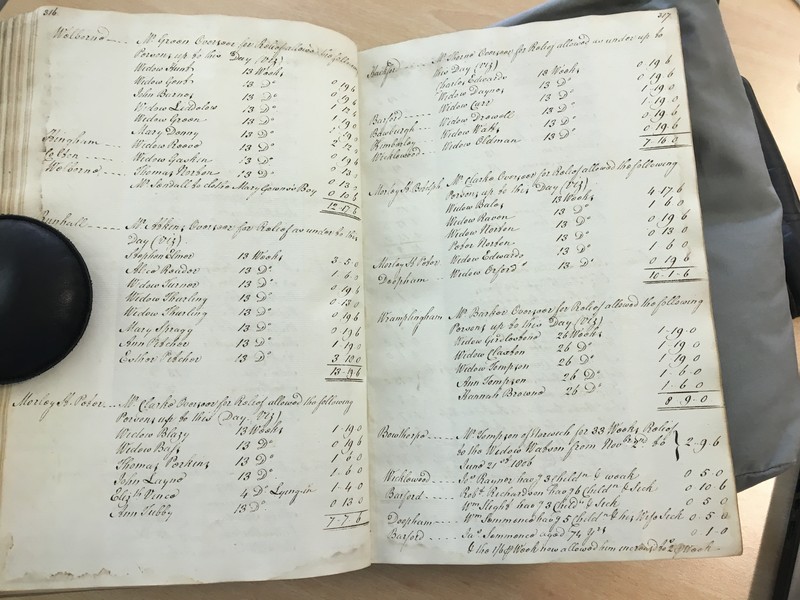 316
Welborne Mr. Green Overseer for Relief allowed the following
Persons up to this Day (Viz)
Widow Hunt 13 Weeks 0 19 6
Widow Gent 13 Do 0 19 6
John Barnes 13 Do
Widow Liddelow 13 Do
Widow Green 13 Do 1 19 0
Mary Denny 13 Do
Widow Reeve 13 Do
Widow Gaskin 13 Do 0 19 6
Thomas Norton 13 Do 0 13 0
Welborne Mr. Kendall to cloth Mary Gowner's Boy 0 10 6
12 17 6
Runhall Mr. Atkins Overseer for Relief as under to this
day (Viz)
Stephen Elmer 13 Weeks 3 5 0
Alice Reader 13 Do 1 6 0
Widow Turner 13 Do 0 19 6
Widow Thurling 13 Do 0 13 0
Widow Thurling 13 Do 0 19 6
Mary Spragg 13 Do 0 19 6
Ann Petcher 13 Do 1 19 0
Esther Petcher 13 Do 3 10 0
Morley St. Peter Mr. Clarke Overseer for Relief allowed the following
Persons up to this Day (Viz)
Widow Blazy 13 Weeks 1 19 0
Widow Bay 13 Do 0 19 6
Thomas Perkins 13 Do 1 6 0
John Layne 13 Do 1 6 0
Elizth Vince 4 Do Lying in 1 4 0
Ann Tubby 13 Do 0 13 0
7 7 6
317
Hackford Mr. Thorne Overseer for Relief allowed as under up to
this Day (Viz)
Charles Edwards 13 Weeks 0 19 6
Widow Daynes 13 Do 0 19 6
Widow Carr 13 Do 1 19 0
Barford Widow Drewell 13 Do 1 19 0
Widow Wats 13 Do 0 19 6
Wicklewood Widow Oldman 13 Do 0 19 6
7 16 0
Morley St. Botolph Mr. Clarke Overseer for Relief allowed the following
Persons up to this Day (Viz)
Widow Bales 13 Weeks 4 17 6
Widow Raven 13 Do 1 6 0
Widow Horton 13 Do 0 19 6
Peter Norton 13 Do 0 13 0
Morley St. Peter Widow Edwards 13 Do 1 6 0
Deopham Widow Orford 13 Do 0 19 6
10 1 6
Wramplingham Mr. Barker Overseer for Relief allowed the following
Persons up to this Day (Viz)
Widow Girdlestone 26 Weeks 1 19 0
Widow Claxton 26 Do 1 19 0
Widow Tompson 26 Do 1 19 0
Ann Tompson 26 Do 1 6 0
Hannah Browne 26 Do 1 6 0
8 9 0
Bowthorpe Mr. Tompson of Norwich for 33 Weeks Relief
to the Widow Waborn from Novber 2nd to 2 9 6
June 21st 1806
Wicklewood Jos. Rayner has 7 Childn & weak 0 5 0
Barford Robt. Richardson has 6 Childn & Sick 0 10 6
Wm. Slight has 3 Childn & Sick 0 5 0
Deopham Wm. Semmence has 5 Childn & his Wife Sick 0 5 0
Barford Jas. Semmence aged 74 Yrs 0 1 0
& the 1/6 p Week now allowed him increased to 2s p Week